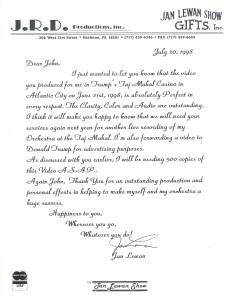 J.R.D. Productions, Inc.
JAN LEWAN SHOW
GIFTS, Inc.
July 20, 1998
Dear John,
I just wanted to let you know that the video
you produced for me in Trump's Taj Mahal Casino in
Atlantic City on June 21st, 1998, is absolutely Perfect in
every respect. The Clarity, Color and Audio are outstanding.
I think it will make you happy to know that we will need your
services again next year for another live recording of my
Orchestra at the Taj Mahal. I'm also forwarding a video to
Donald Trump for advertising purposes.
As discussed with you earlier, I will be needing 500 copies of
this Video A.S.A.P..
Again John, Thank You for an outstanding production and
personal efforts in helping to make myself and my orchestra a
huge success.
Happiness to you,
Wherever you go,
Whatever you do!
Jan Lewan
Jan Lewan Show